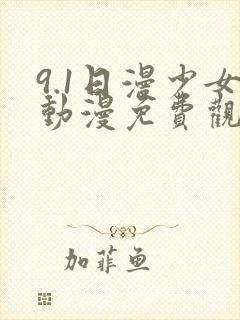 9.1日漫少女
動漫免費觀
加菲鱼